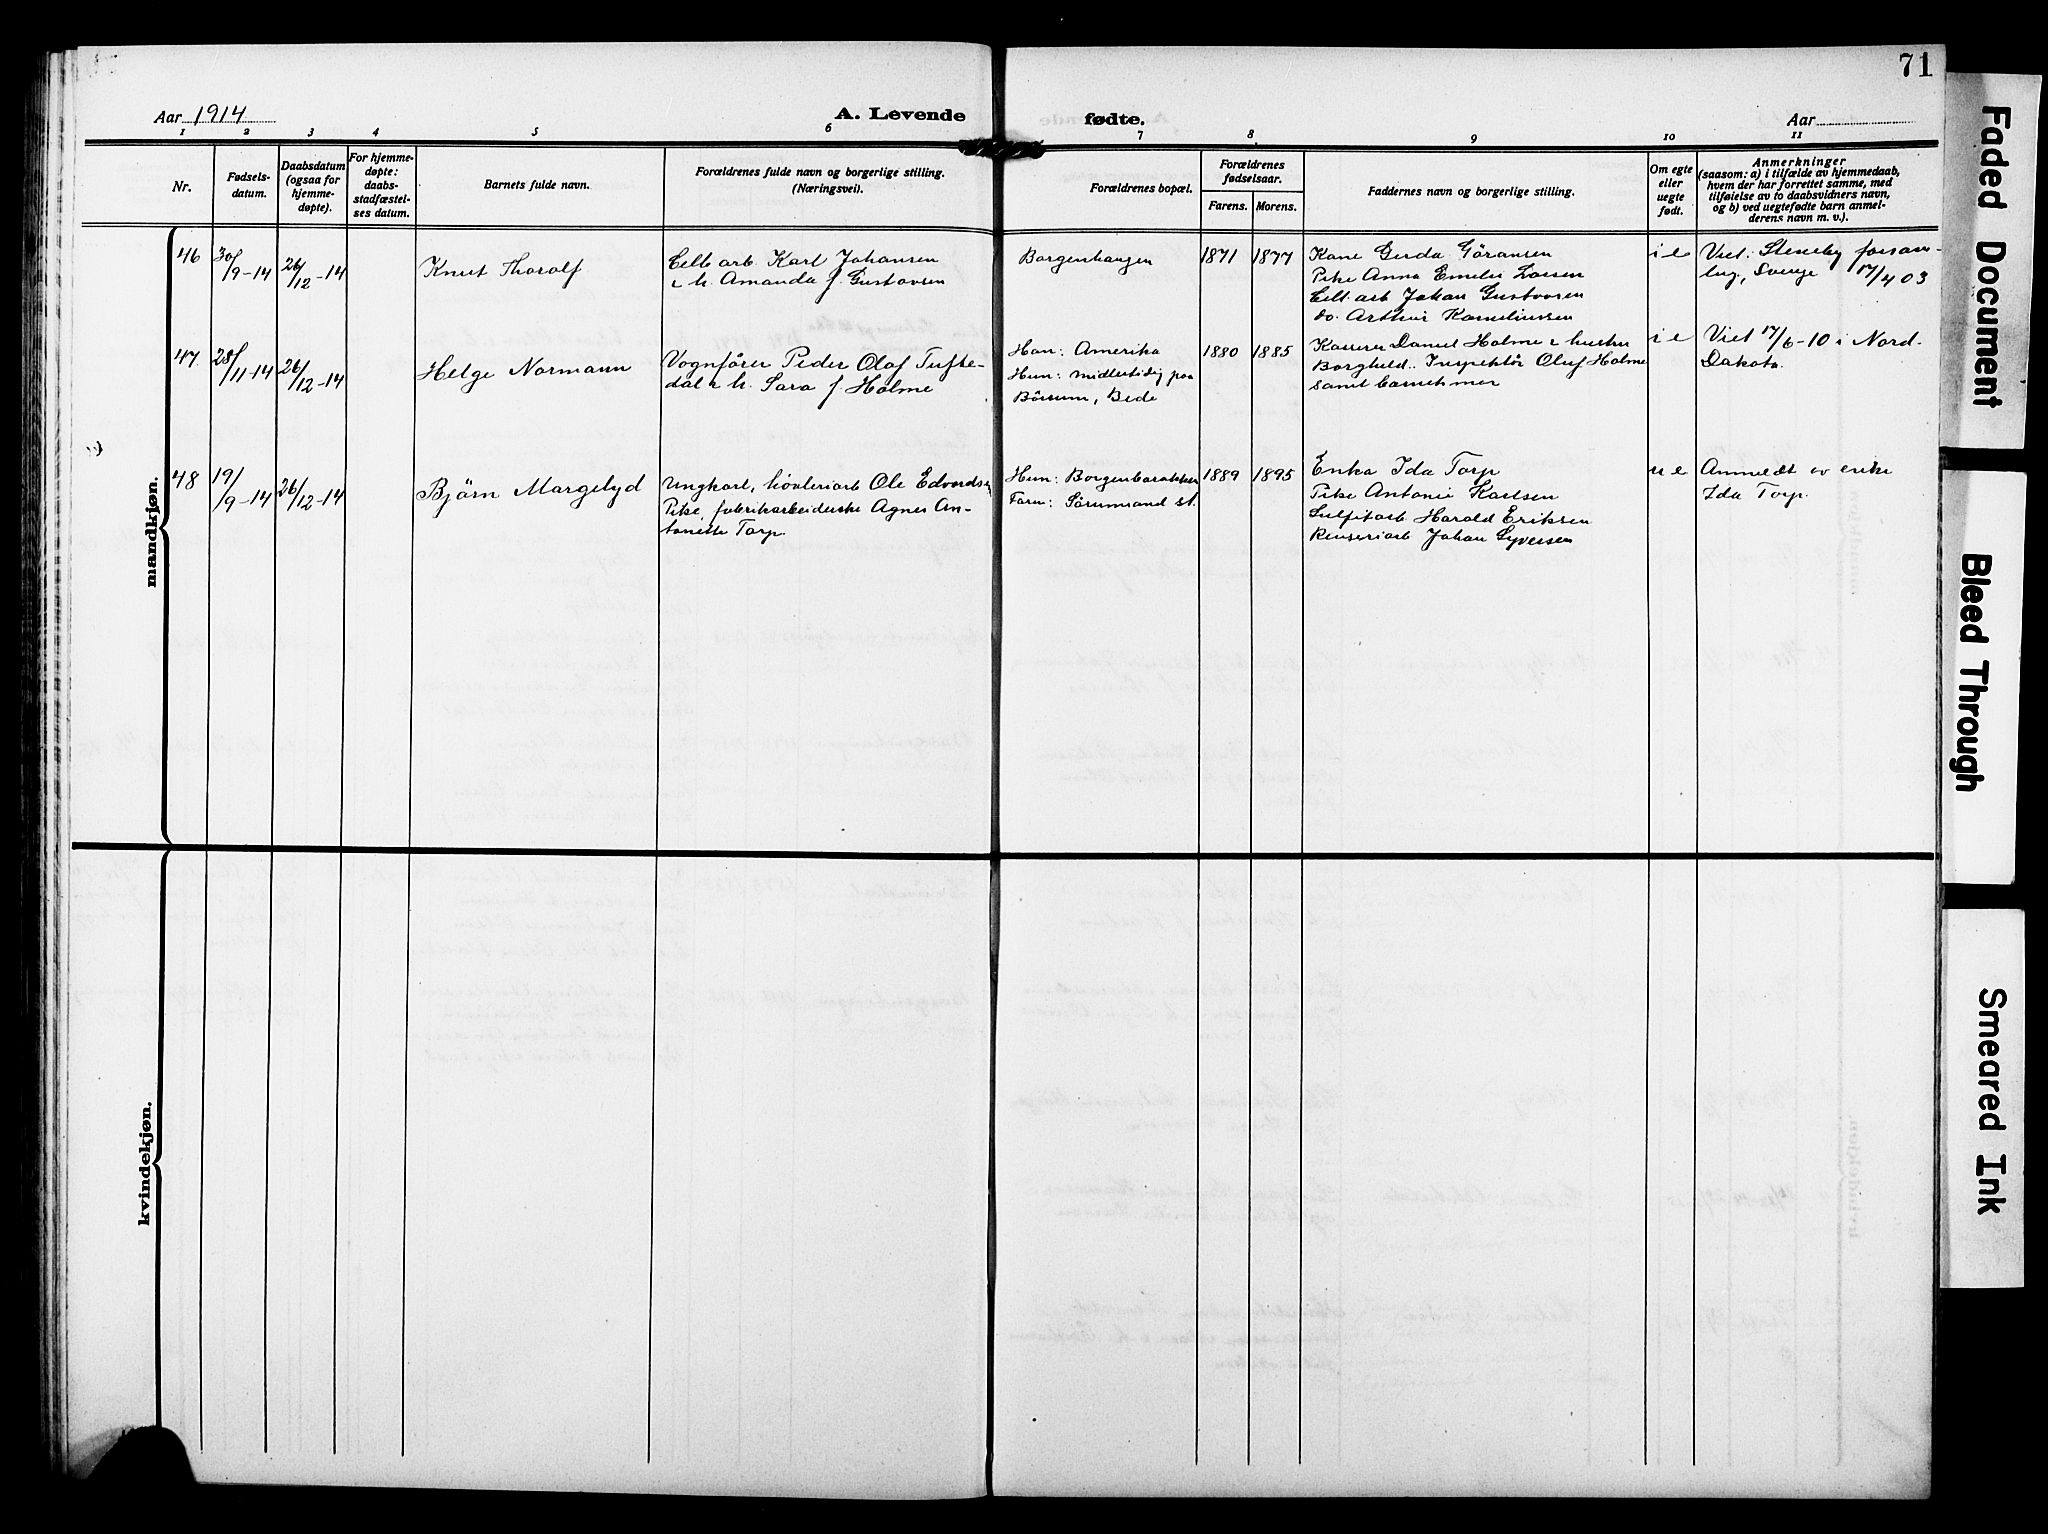 71
Aar 1914
A. Levende
fødte.
Aar
1 2 3 4 5 6 7 8 9 10 11
Nr.
Fødsels-
datum.
Daabsdatum
(ogsaa for
hjemme-
døpte).
For hjemme-
døpte:
daabs-
stadfæstel-
ses datum.
Barnets fulde navn.
Forældrenes fulde navn og borgerlige stilling.
(Næringsvei).
Forældrenes bopæl.
Forældrenes
fødselsaar.
Farens.
Morens.
Faddernes navn og borgerlige stilling.
Om egte
eller
uegte
født.
Anmerkninger
(saasom: a) i tilfælde av hjemmedaab,
hvem der har forrettet samme, med
tilføielse av to daabsvidners navn,
og b) ved uegtefødte barn anmel-
derens navn m. v.).
mandkjøn.
46
30/9-14
26/12-14
Knut Thorolf
Cell. arb. Karl Johansen
& h. Amanda f. Gustavsen
Borgenhaugen
1871
1877
Kone Gerda Göransen
Pike Anna Emelie Larsen
Cell. arb Johan Gustavsen
do. Arthur Korneliussen
i e
Viet: Steneby forsam-
ling, Sverige 17/4 03
47
28/11-14
26/12-14
Helge Normann
Vognfører Peder Olaf Tufte-
dal & h. Sara f. Holme
Han: Amerika
Hun: midlertidig paa
Börsum, Bede
1880
1885
Kasserer Daniel Holme & hustru
Borghild. Inspektör Oluf Holme
samt barnets mor
i e
Viet 17/6-10 i Nord-
Dakota.
48
19/9-14
26/12-14
Björn Margelyd
Ungkarl, høvleriarb Ole Edvardsen
Pike, fabrikarbeiderske Agnes An-
tonette Torp.
Hun: Borgenbarakken
Faren: Sörumsand st.
1889
1895
Enke Ida Torp
Pike Antonie Karlsen
Sulfitarb Harald Eriksen
Renseriarb Johan Syversen
u e
Anmeldt av enke
Ida Torp.
kvindekjøn.
Faded Document
Bleed Through
Smeared Ink